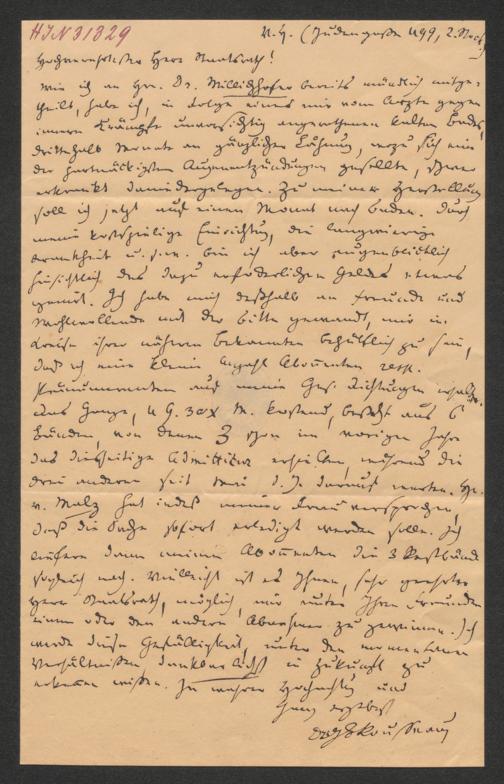 HIN 31829
V. H. (Judengasse 499, 2. Stock)
Hochverehrtester Herr Staatsrath!
Wie ich an Hrn. Dr. Millichhofer bereits mündlich mitge-
theilt, habe ich, in Folge eines mir vom Arzte gegen
innere Krämpfe unvorsichtig angerathenen kalten Bades,
dritthalb Monate an gänzlicher Lähmung, wozu sich eine
der hartnäckigsten Augenentzündungen gesellte, schwer
erkrankt daniedergelegen. Zu meiner Herstellung
soll ich jetzt auf einen Monat nach Baden. Durch
meine kostspielige Einrichtung, die langwierige
Krankheit u. s. w. bin ich aber augenblicklich
hinsichtlich des dazu erforderlichen Geldes etwas
geniert. Ich habe mich deßhalb an Freunde und
Wohlwollende mit der Bitte gewandt, mir im
Kreise ihrer näheren Bekannten behülflich zu sein,
daß ich eine kleine Anzahl Abonnenten resp.
Pränumeranten auf meine Ges. Dichtungen erhalte.
Das Ganze, 4 G. 30 x M. kostend, besteht aus 6
Bänden, von denen 3 schon im vorigen Jahre
das diesseitige Admittitur erhielten, während die
drei anderen seit Mai d. J. darauf warten. Hr.
v. Malz hat indeß meiner Frau versprochen,
daß die Sache sofort erledigt werden solle. Ich
liefere dann meinen Abonnenten die 3 Restbände
sogleich nach. Vielleicht ist es Ihnen, sehr geehrter
Herr Staatsrath, möglich, mir unter Ihren Freunden
einen oder den andern Abnehmer zu gewinnen. Ich
werde diese Gefälligkeit, unter den momentanen
Verhältnissen, dankbarlichst in Zukunft zu
erkennen wissen. In wahrer Hochachtung und
Ganz ergebenst
Rousseau